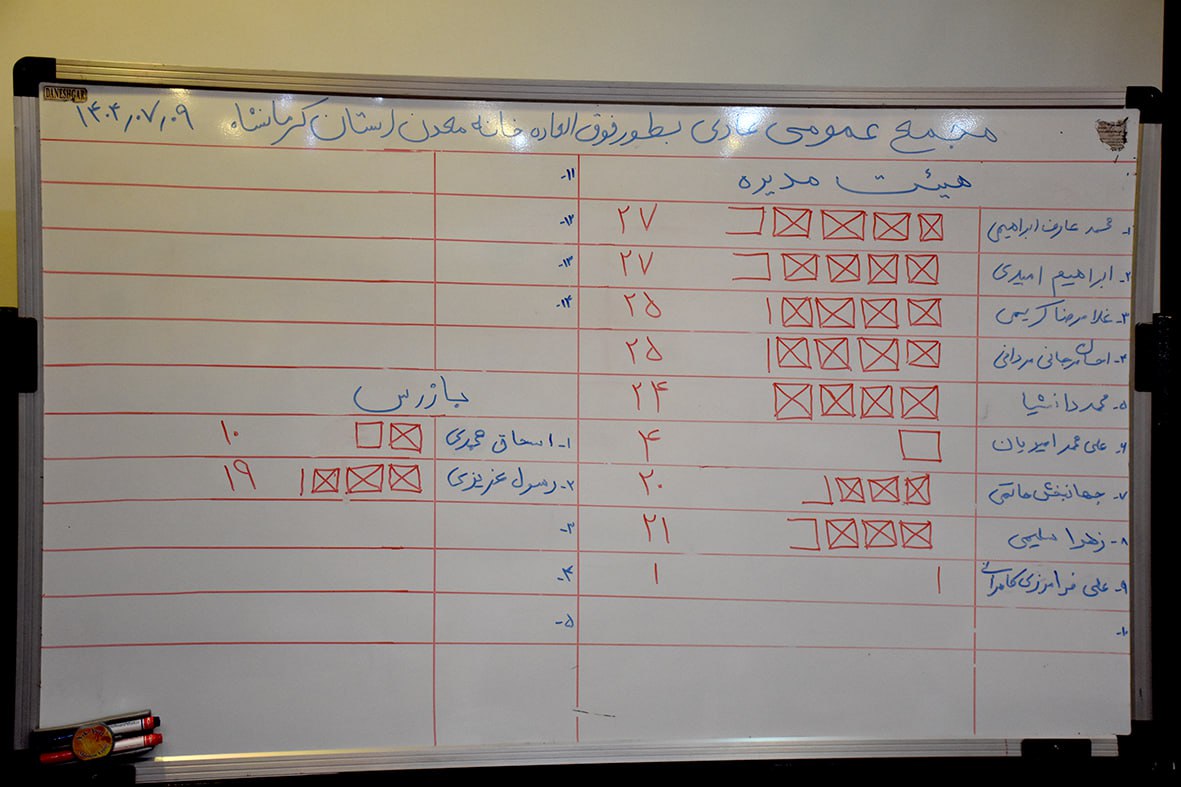 DANESHGAR
مجمع عمومی عادی بطور فوق العاده خانه معدن استان کرمانشاه ۱۴۰۴٫۰۷٫۰۹
هیئت مدیره
۱- محمد عارف ابراهیمی ۲۷
۲- ابراهیم امیدی ۲۷
۳- غلامرضا کریمی ۲۵
۴- احسان مرجانی مردانی ۲۵
۵- محمد دانشیا ۲۴
۶- علی محمد امیریان ۴
۷- جهانبخش حاتمی ۲۰
۸- زهرا سلیمی ۲۱
۹- علی فرامرزی کامرانی ۱
۱۰-
۱۱-
۱۲-
۱۳-
۱۴-
بازرس
۱- اسحاق محمدی ۱۰
۲- رسول عزیزی ۱۹
۳-
۴-
۵-